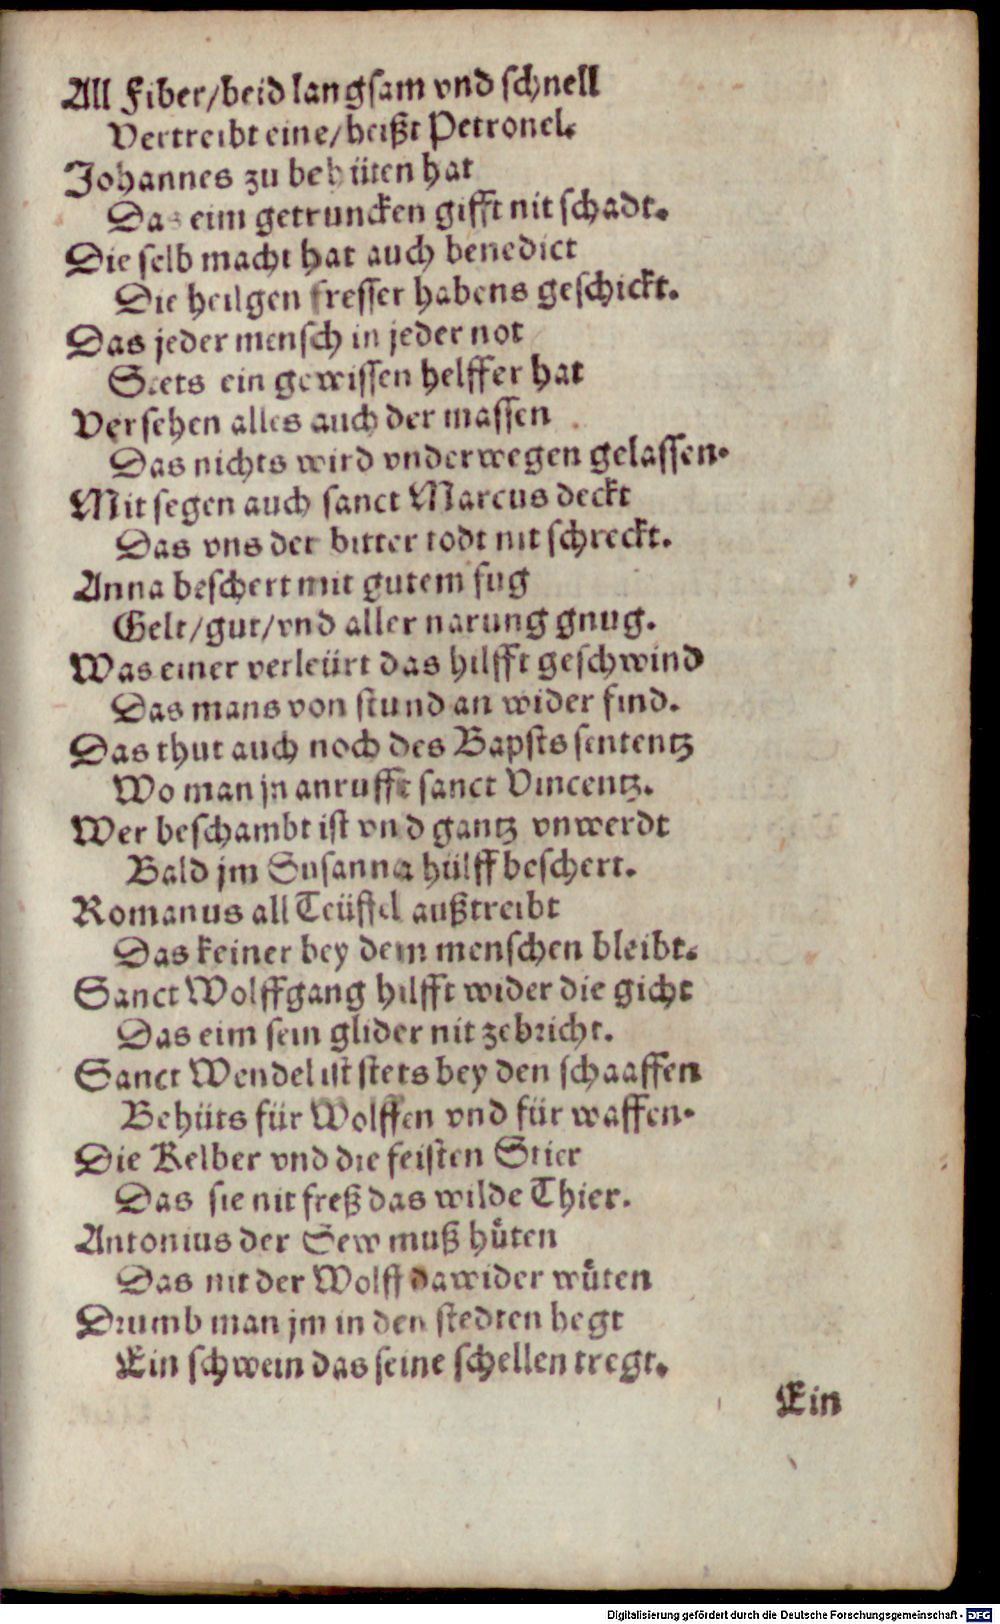 All Fiber/beid langsam vnd schnell
Vertreibt eine/heißt Petronel.
Johannes zu behüten hat
Das eim getruncken gifft nit schadt.
Die selb macht hat auch benedict
Die heilgen fresser habens geschickt.
Das jeder mensch in jeder not
Stets ein gewissen helffer hat
Versehen alles auch der massen
Das nichts wird vnderwegen gelassen.
Mit segen auch sanct Marcus deckt
Das vns der bitter todt nit schreckt.
Anna beschert mit gutem fug
Gelt/gut/vnd aller narung gnug.
Was einer verleürt das hilfft geschwind
Das mans von stund an wider find.
Das thut auch noch des Bapsts sententz
Wo man jn anrufft sanct Vincentz.
Wer beschambt ist vnd gantz vnwerdt
Bald jm Susanna hülff beschert.
Romanus all Teüffel außtreibt
Das keiner bey dem menschen bleibt.
Sanct Wolffgang hilfft wider die gicht
Das eim sein glider nit zebricht.
Sanct Wendel ist stets bey den schaaffen
Behüts für Wolffen vnd für waffen.
Die Kelber vnd die feisten Stier
Das sie nit freß das wilde Thier.
Antonius der Sew muß hůten
Das nit der Wolff dawider wůten
Drumb man jm in den stedten hegt
Ein schwein das seine schellen tregt.
Ein
Digitalisierung gefördert durch die Deutsche Forschungsgemeinschaft - DFG